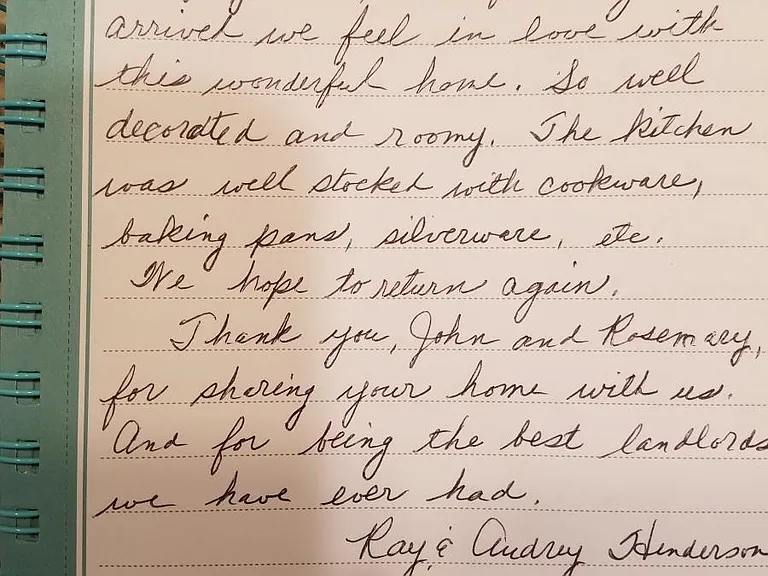 arrived we feel in love with
this wonderful home. So well
decorated and roomy. The kitchen
was well stocked with cookware,
baking pans, silverware, etc.
We hope to return again.
Thank you, John and Rosemary,
for sharing your home with us.
And for being the best landlords
we have ever had.
Ray & Audrey Henderson